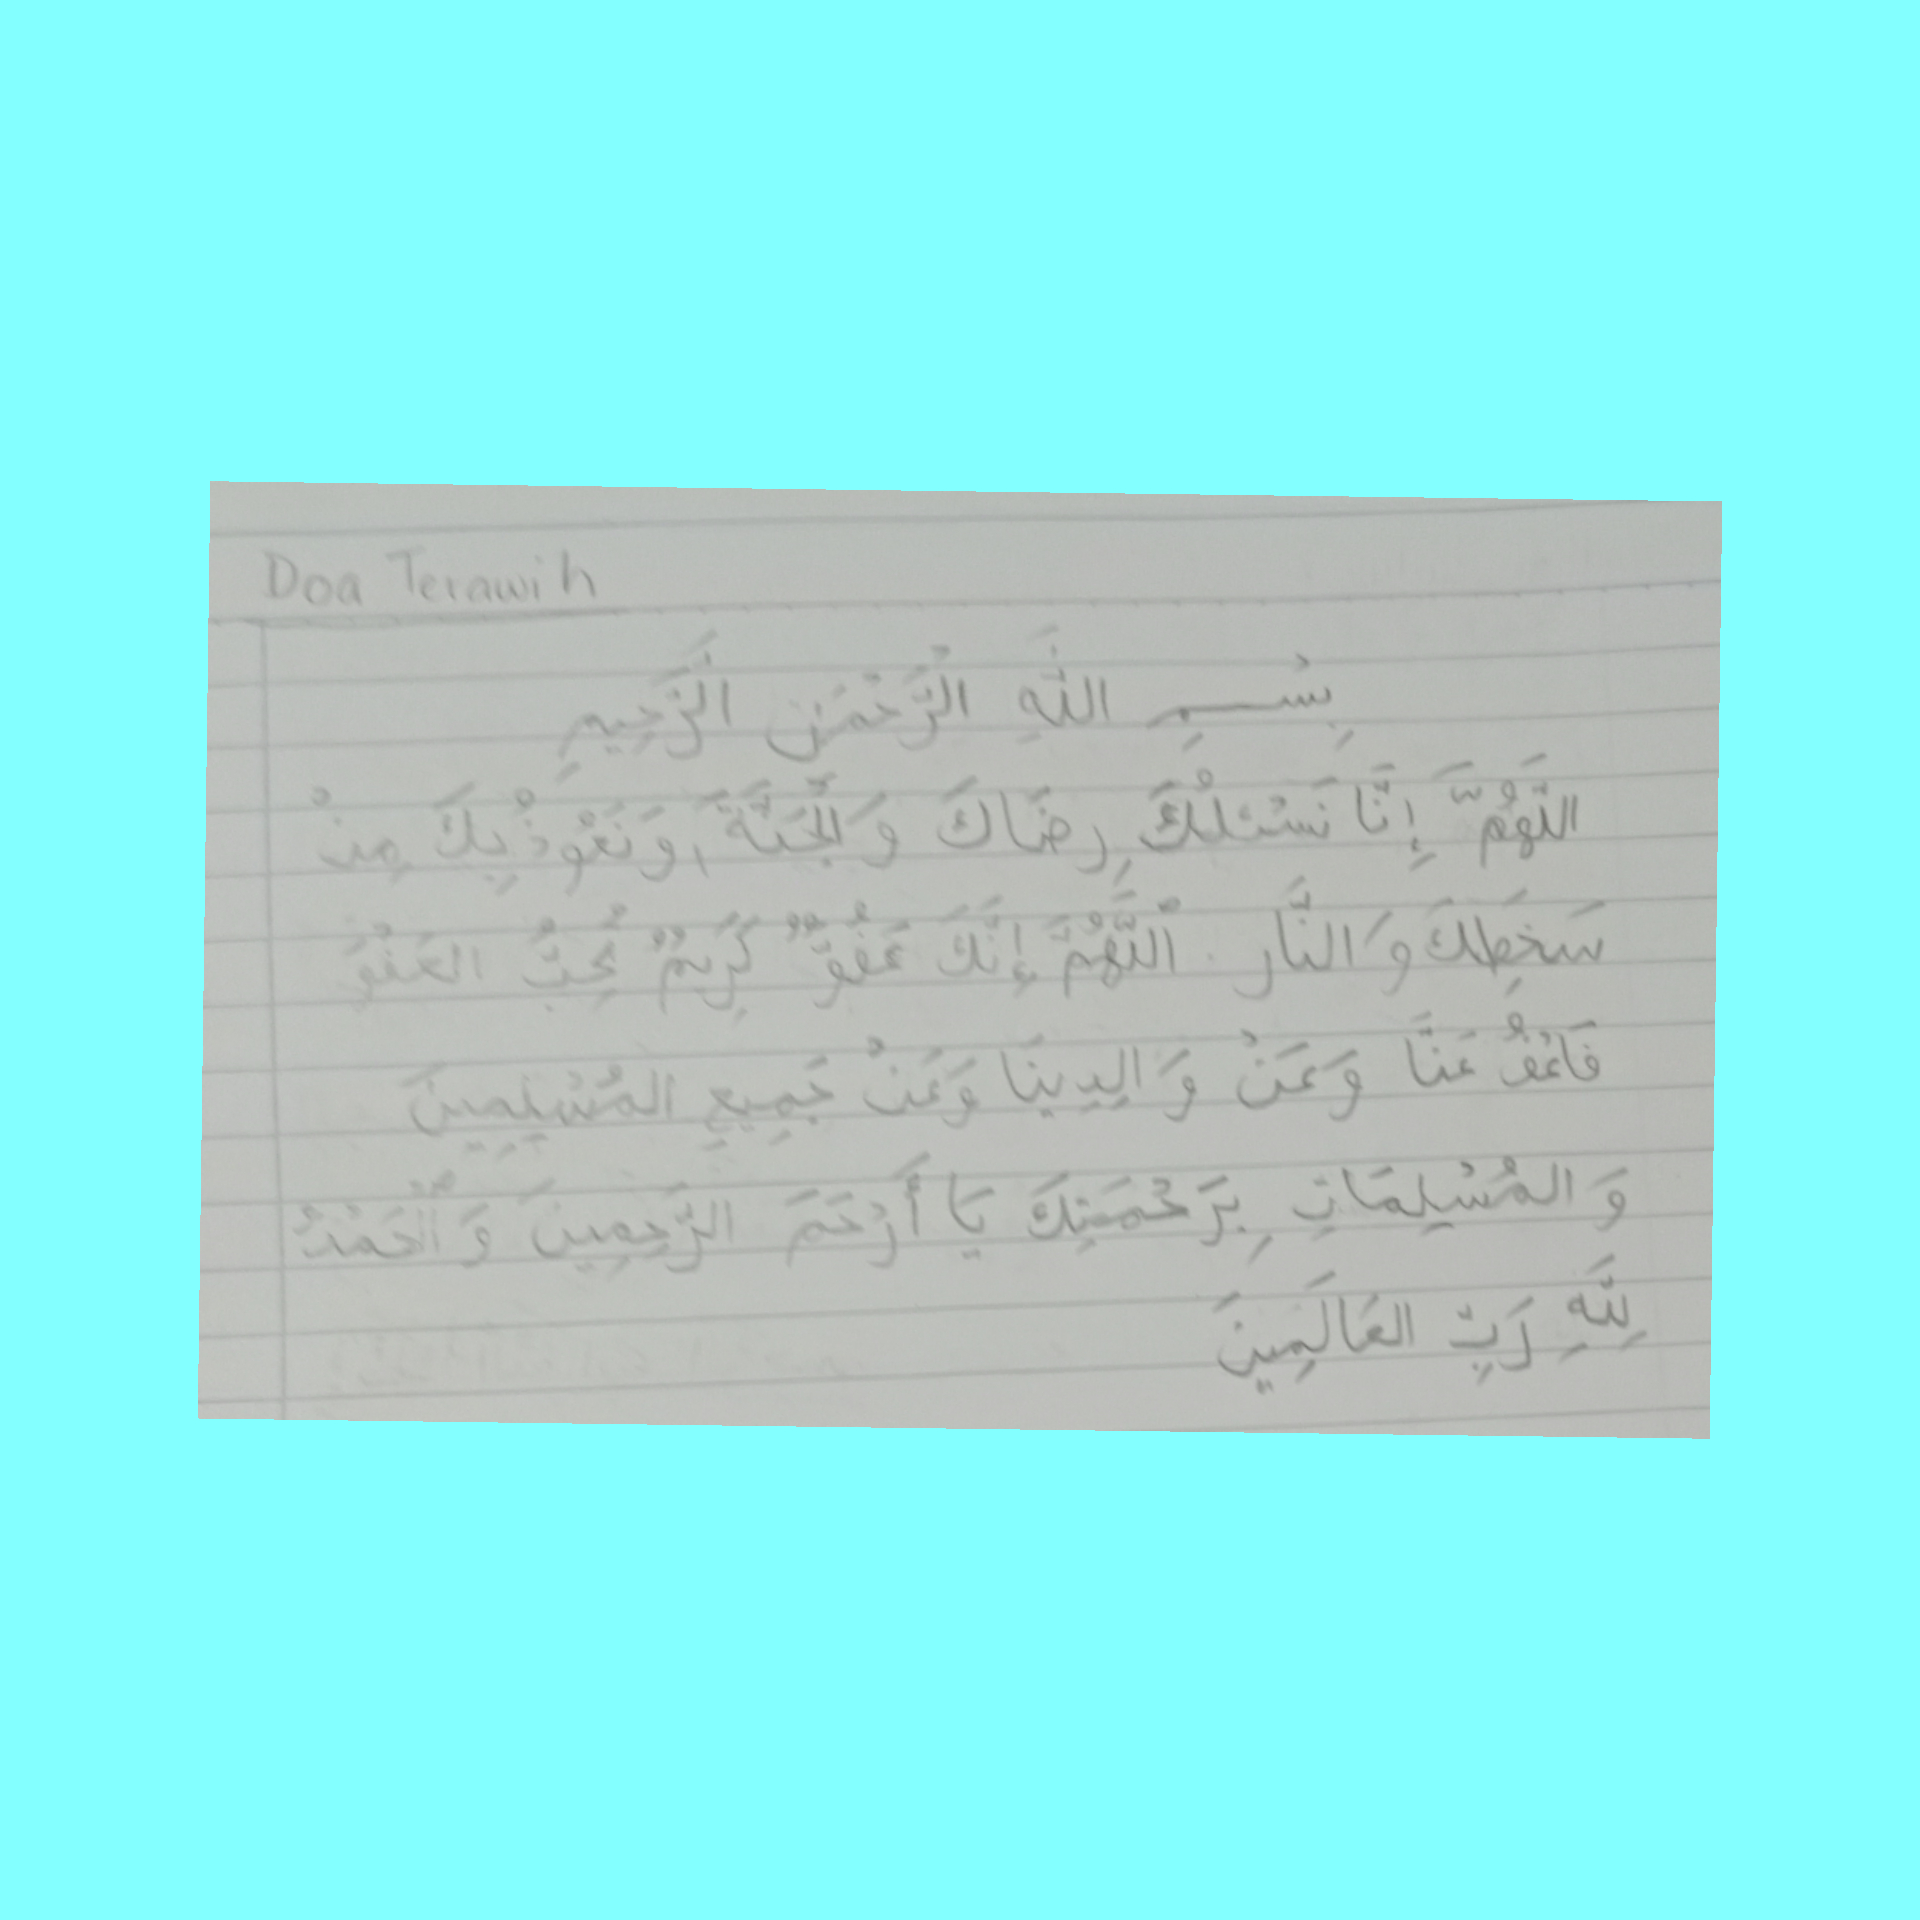 Doa Terawih
بِسْمِ اللَّهِ الرَّحْمَنِ الرَّحِيمِ
اللَّهُمَّ إِنَّا نَسْئَلُكَ رِضَاكَ وَالْجَنَّةَ, وَنَعُوْذُ بِكَ مِنْ
سَخَطِكَ وَالنَّارِ. اَللَّهُمَّ إِنَّكَ عَفُوٌّ كَرِيْمٌ تُحِبُّ العَفْوَ
فَاعْفُ عَنَّا وَعَنْ وَالِدِينَا وَعَنْ جَمِيعِ المُسْلِمِينَ
وَالمُسْلِمَاتِ بِرَحْمَتِكَ يَا أَرْحَمَ الرَّحِمِينَ وَالْحَمْدُ
لِلَّهِ رَبِّ العَالَمِينَ